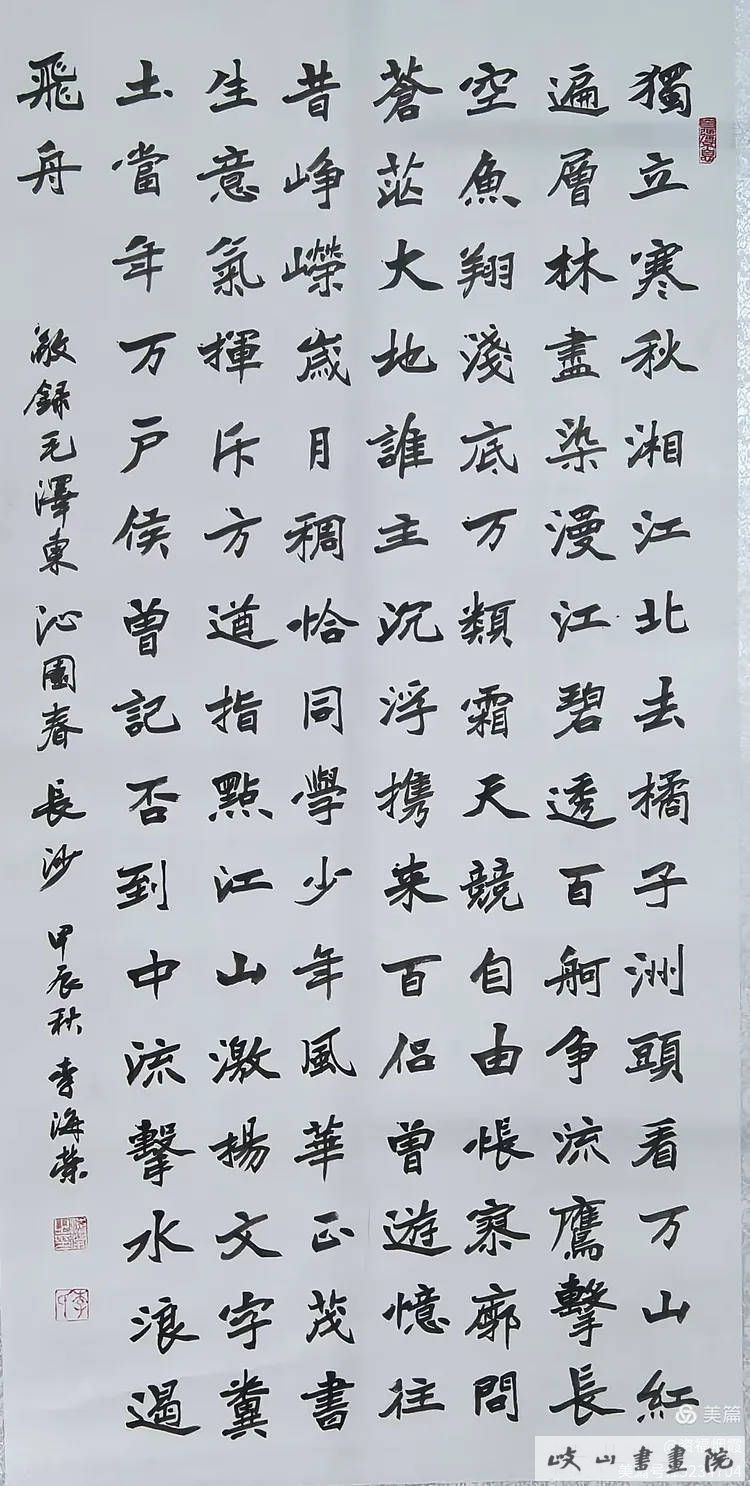 獨立寒秋湘江北去橘子洲頭看万山紅
遍層林盡染漫江碧透百舸争流鷹擊長
空魚翔淺底万類霜天競自由悵寥廓問
蒼茫大地誰主沉浮携来百侣曾遊憶往
昔峥嶸歲月稠恰同學少年風華正茂書
生意氣揮斥方遒指點江山激揚文字糞
土當年万户侯曾記否到中流擊水浪遏
飛舟
敬錄毛澤東沁園春長沙甲辰秋李海榮
美篇
岐山書畫院